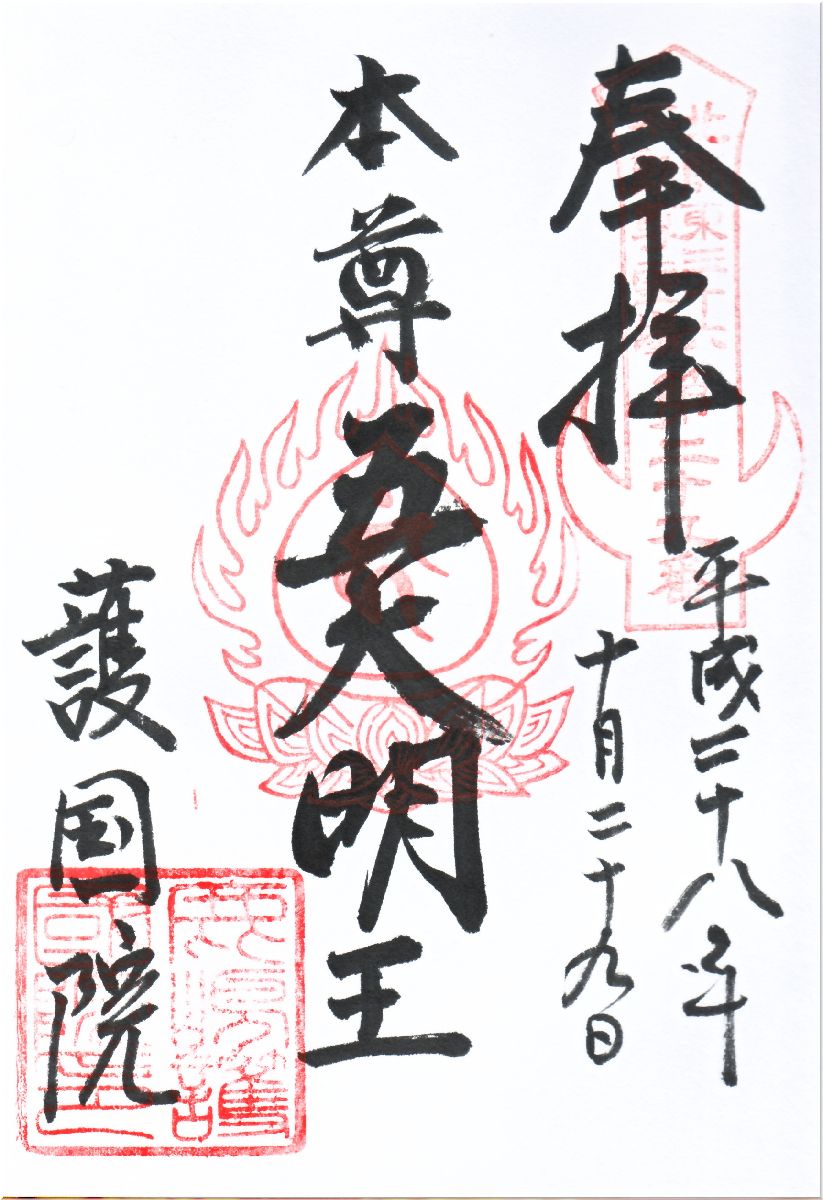 奉拝
平成二十八年
十月二十九日
本尊
五大明王
護国院